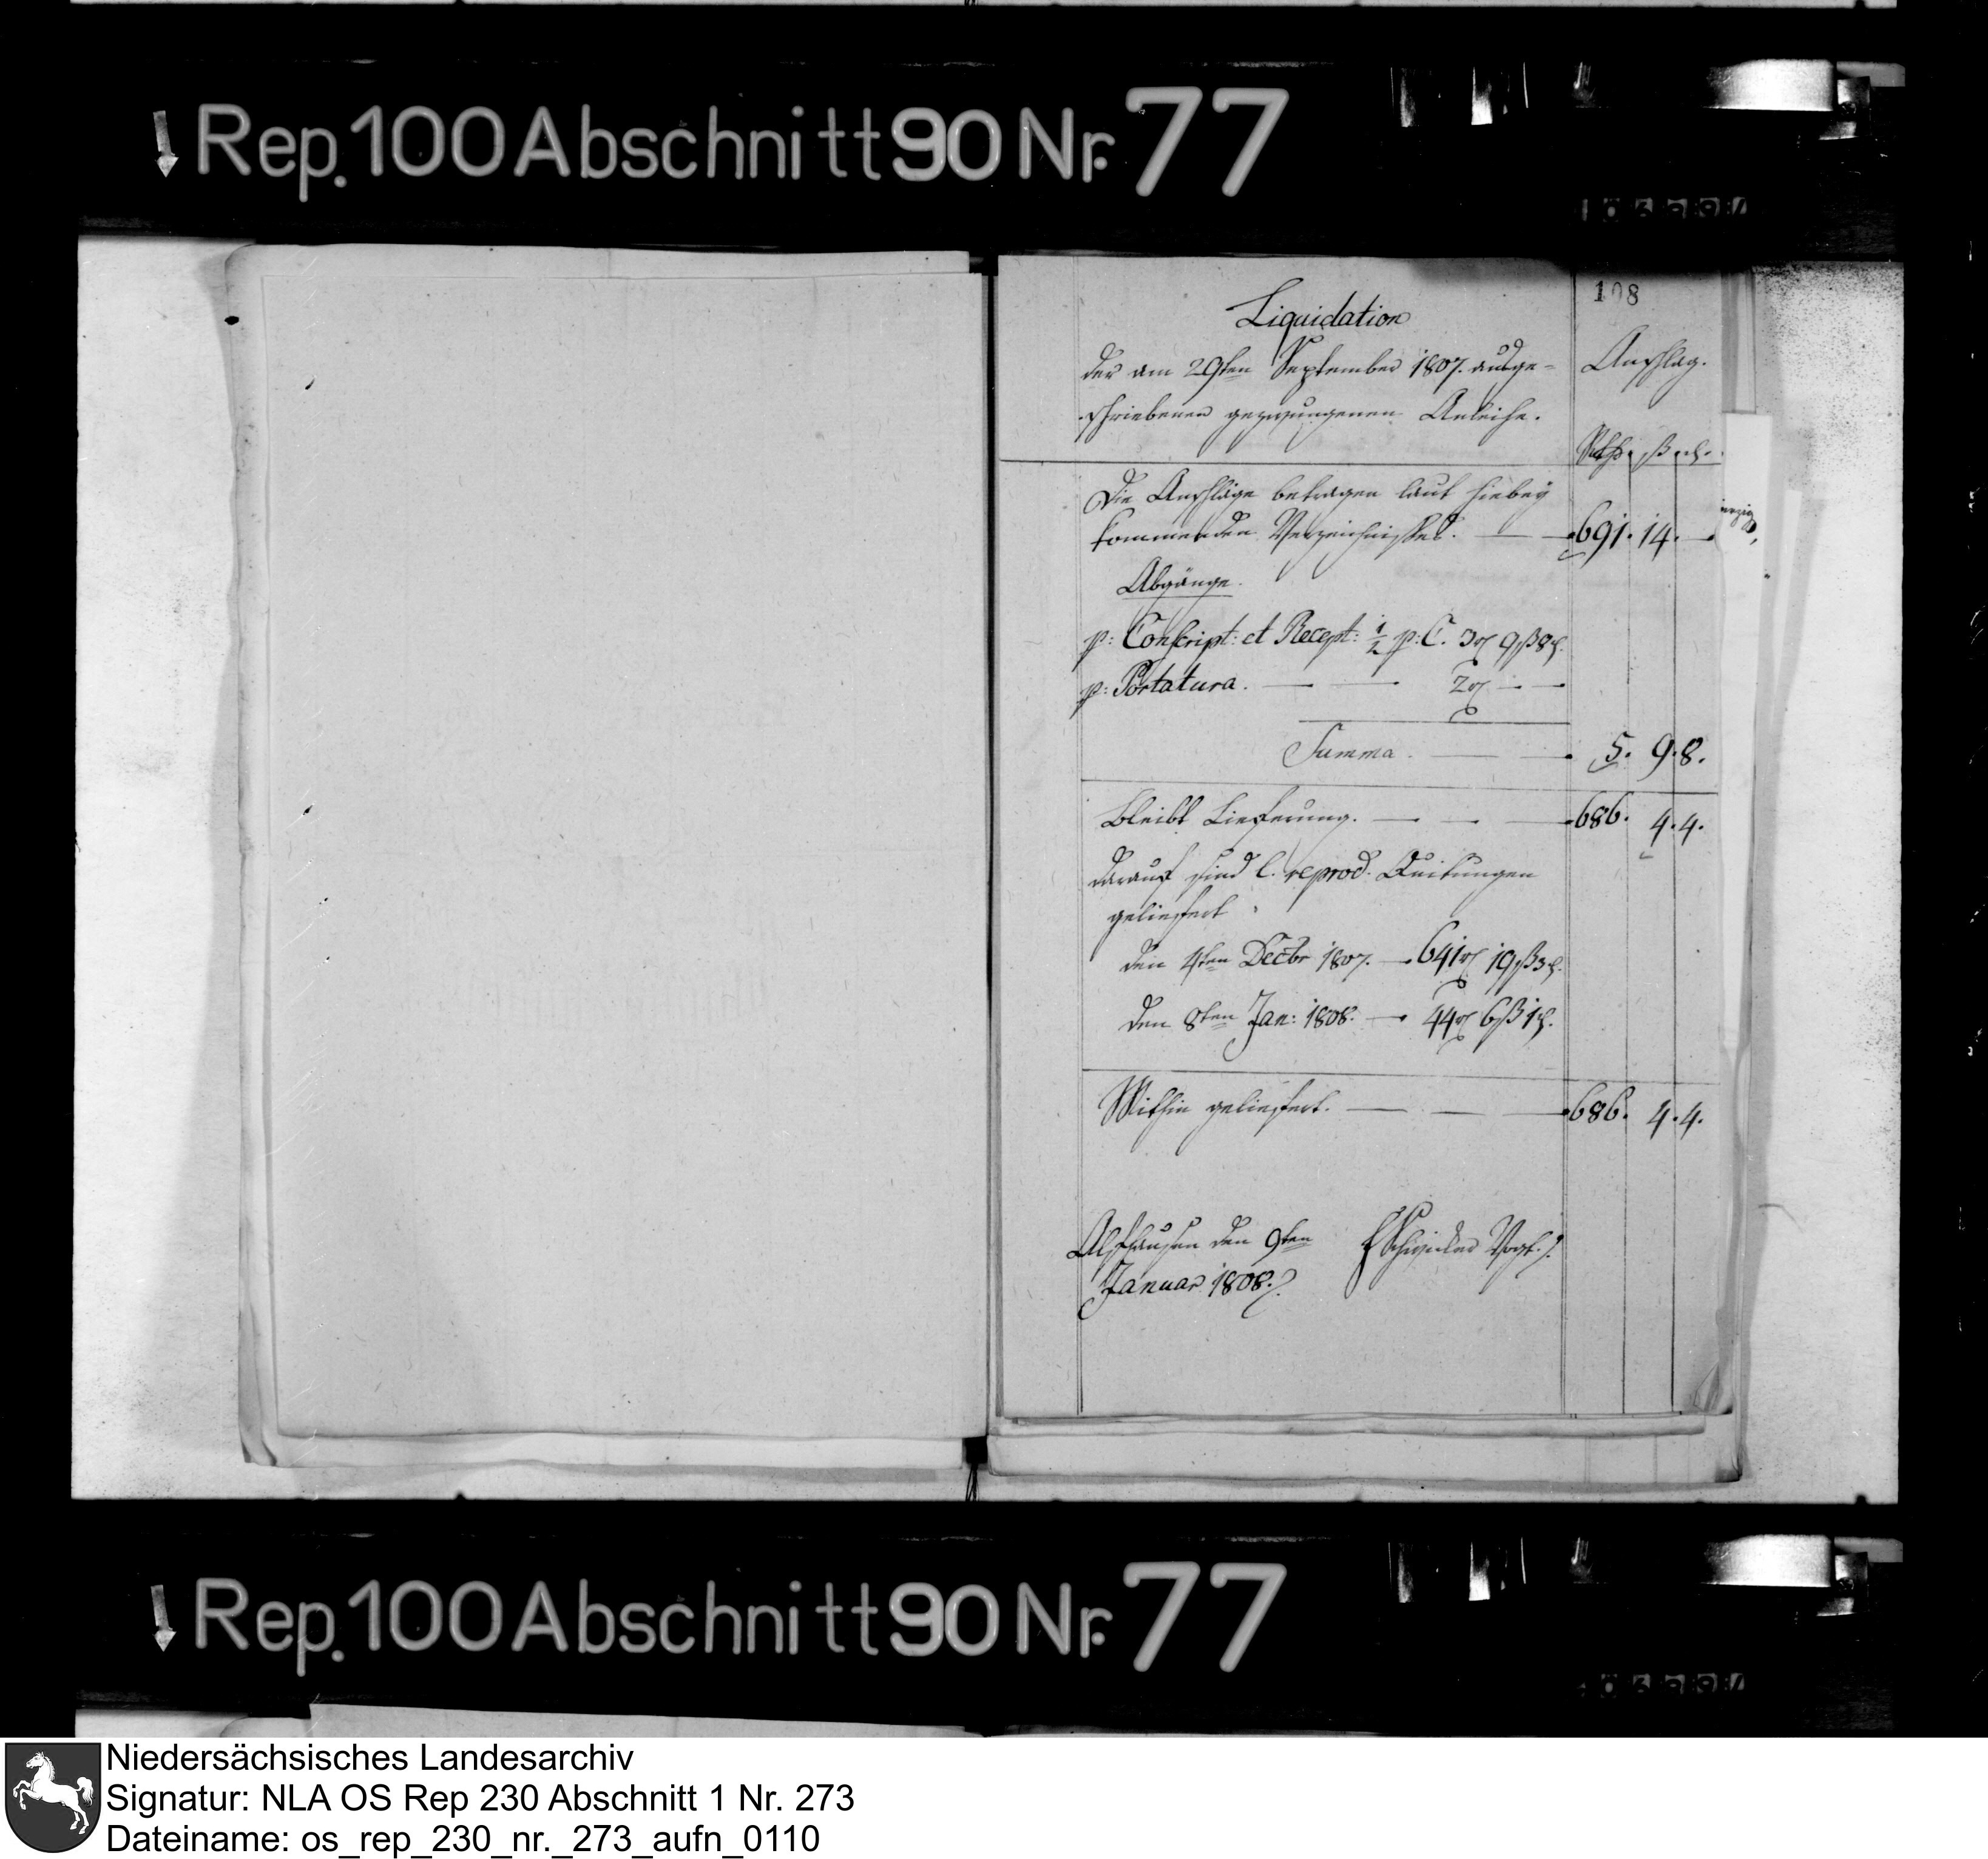 Rep. 100 Abschnitt 90 Nr. 77
108
Liquidation
der am 29ten September 1807. ausge-
schriebenen gezwungenen Anleihe.
Anschlag.
Rthr. ß. d.
Die Anschläge betragen laut hiebey
kommenden Verzeichnisses. — 691. 14. —
Abgänge.
p: Conscript: et Recept: 1/2 p: C. 3 rl 9 ß 8 d.
p: Portatura. — — 2 rl — —
Summa. — 5. 9. 8.
Bleibt Lieferung. — — — 686. 4. 4.
darauf sind l. reprod. Quitungen
geliefert
den 4ten Decbr 1807. — 641 rl 19 ß 3 d.
den 8ten Jan: 1808. — 44 rl 6 ß 1 d.
Mithin geliefert. — — — 686. 4. 4.
Alfhausen den 9ten
Januar 1808.
Vogt.
Rep. 100 Abschnitt 90 Nr. 77
Niedersächsisches Landesarchiv
Signatur: NLA OS Rep 230 Abschnitt 1 Nr. 273
Dateiname: os_rep_230_nr._273_aufn_0110